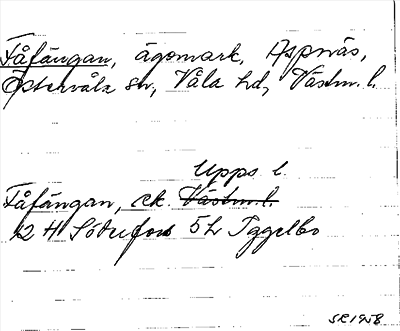 Fåfängan, ägomark, Aspnäs,
Östervåla sn, Våla hd, Västm. l.
Upps. l.
Fåfängan, ek. Västm. l.
12 H Söderfors 5h Iggelbo
SR 1958